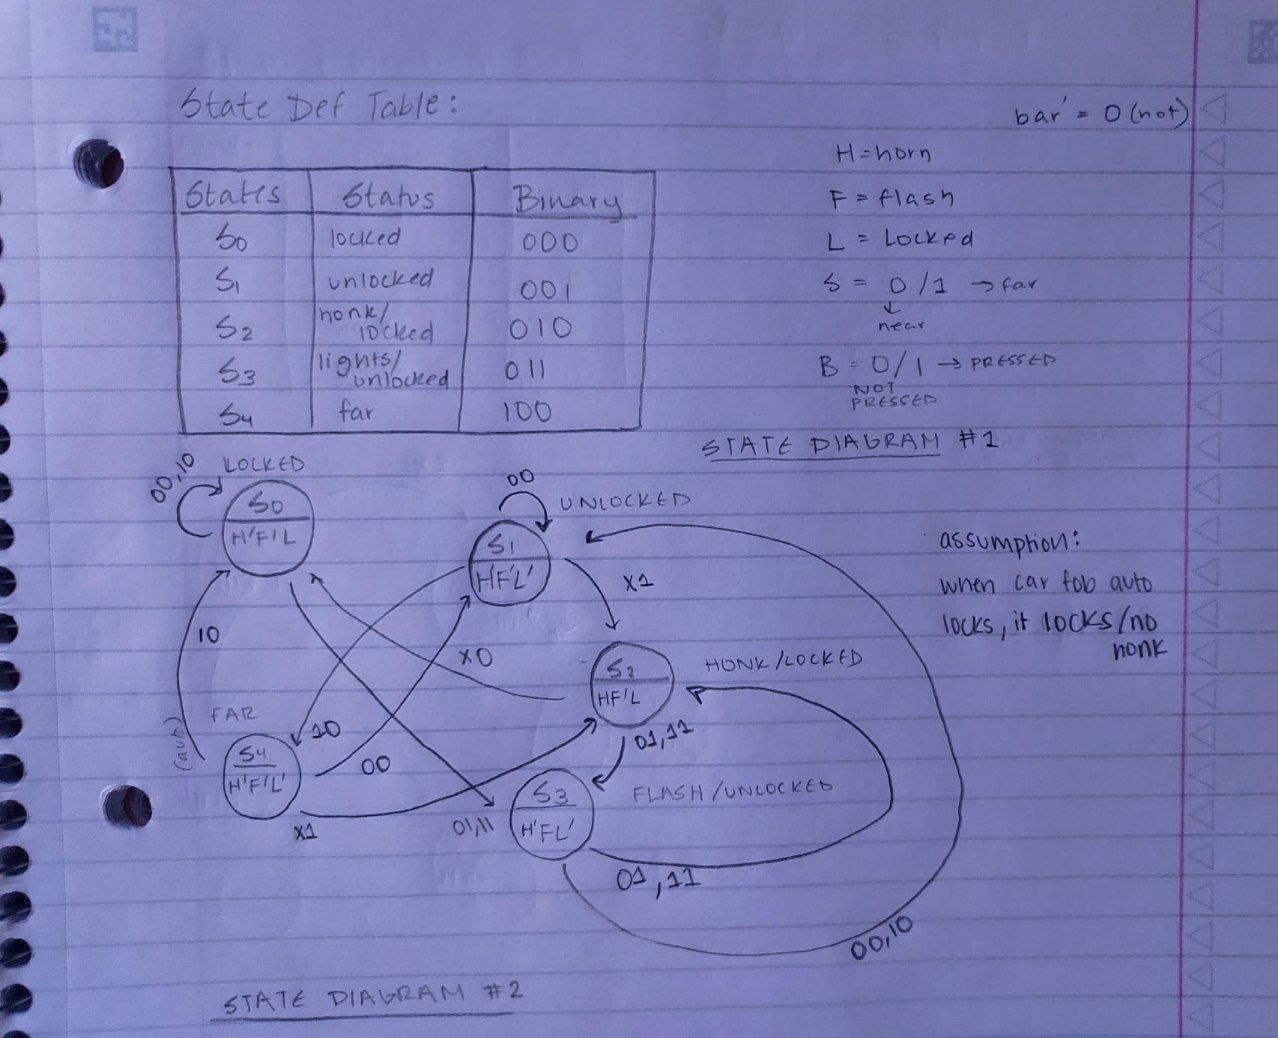 State Def Table:
bar' = 0 (not)
H = horn
F = flash
L = Locked
S = 0/1 → far
↓
near
B = 0/1 → PRESSED
NOT
PRESSED
States Status Binary
S0 locked 000
S1 unlocked 001
S2 honk/ locked 010
S3 lights/ unlocked 011
S4 far 100
STATE DIAGRAM #1
LOCKED
00,10
S0
H'F'L
00
UNLOCKED
S1
H'F'L'
X1
assumption:
when car fob auto
locks, it locks/no
honk
10
X0
S2
HF'L
HONK/LOCKED
FAR
(auto)
10
S4
H'F'L'
00
01,11
S3
H'FL'
FLASH/UNLOCKED
X1
01,11
01,11
00,10
STATE DIAGRAM #2